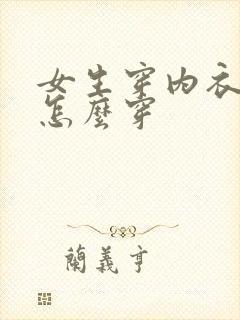 女生穿內衣
怎麼穿
蘭義亨